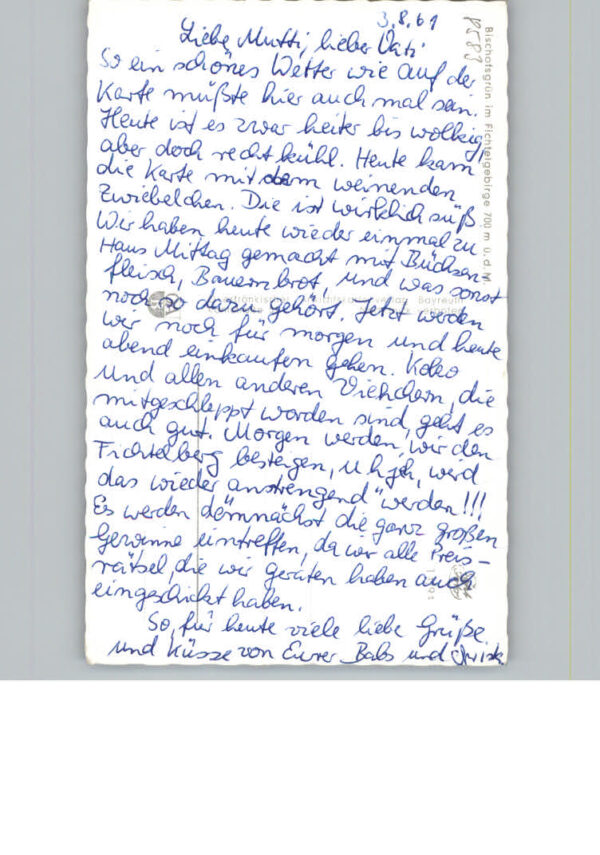 3.8.61
Liebe Mutti, lieber Vati
So ein schönes Wetter wie auf der
Karte müßte hier auch mal sein.
Heute ist es zwar heiter bis wolkig,
aber doch recht kühl. Heute kam
die Karte mit dem weinenden
Zwiebelchen. Die ist wirklich süß.
Wir haben heute wieder einmal zu
Haus Mittag gemacht mit Büchsen-
fleisch, Bauernbrot, und was sonst
noch so dazu gehört. Jetzt werden
wir noch für morgen und heute
abend einkaufen gehen. Koko
und allen anderen Viehchern, die
mitgeschleppt worden sind, geht es
auch gut. Morgen werden wir den
Fichtelberg besteigen, werd
das wieder anstrengend werden!!!
Es werden demnächst die ganz großen
Gewinne eintreffen, da wir alle Preis-
rätsel, die wir geraten haben auch
eingeschickt haben.
So, für heute viele liebe Grüße
und Küsse von Eurer Babs und
Bischofsgrün im Fichtelgebirge 700 m ü. d. M.
Bayreuth